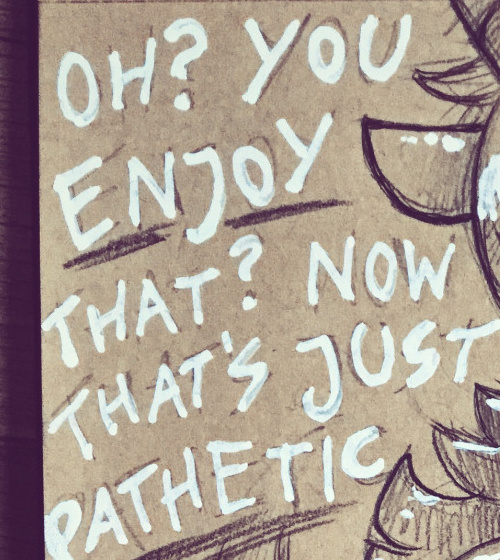 OH? YOU
ENJOY
THAT? NOW
THAT'S JUST
PATHETIC